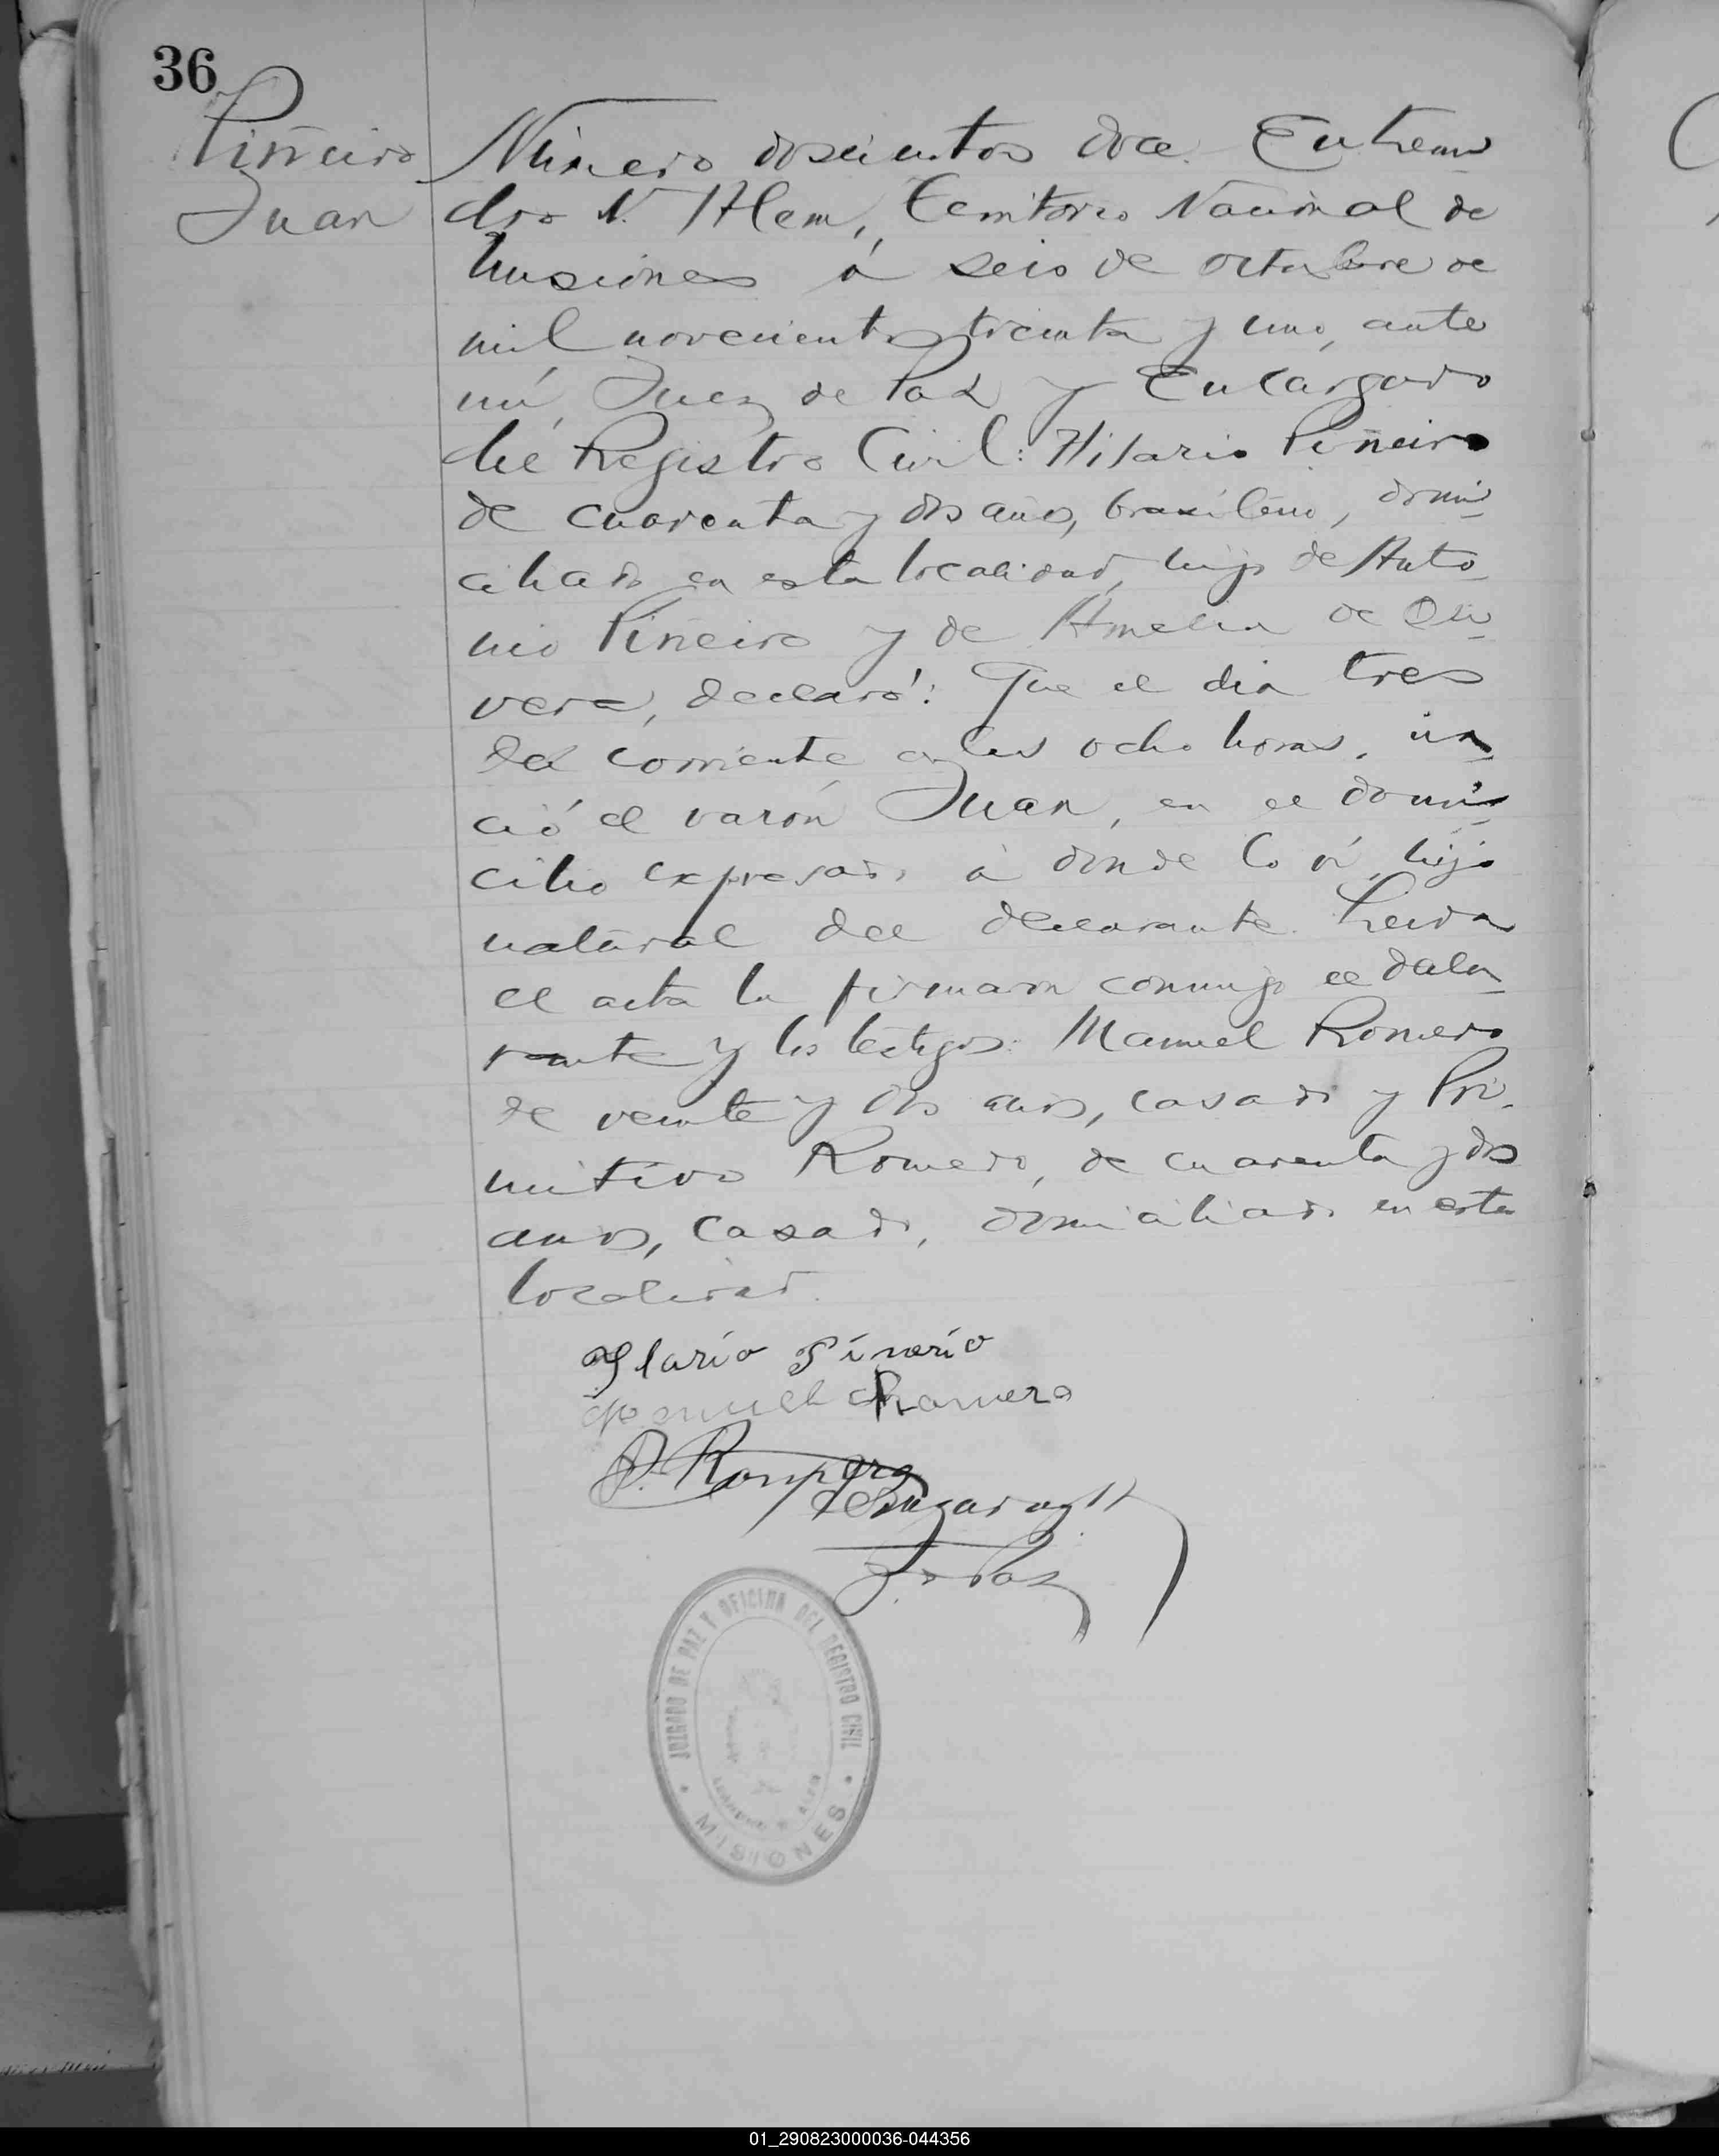 36
Piñeiro
Juan
Número doscientos doce. En Lean-
dro N. Alem, Territorio Nacional de
Misiones á seis de octubre de
mil novecientos treinta y uno, ante
mí, Juez de Paz y Encargado
del Registro Civil: Hilario Piñeiro
de cuarenta y dos años, brasileño, domi-
ciliado en esta localidad, hijo de Anto-
nio Piñeiro y de Amelia de Oli-
vera, declaró: Que el dia tres
del corriente a las ocho horas, na-
ció el varón Juan, en el domi-
cilio expresado á donde lo ví, hijo
natural del declarante. Leida
el acta la firmaron conmigo el decla-
rante y los testigos: Manuel Romero
de veinte y dos años, casado y Pri-
mitivo Romero, de cuarenta y dos
años, casado, domiciliado en esta
localidad.
Ylario Pinerio
Manuel Romero
P. Romero
J. de Paz
JUZGADO DE PAZ Y OFICINA DEL REGISTRO CIVIL
MISIONES
01_290823000036-044356